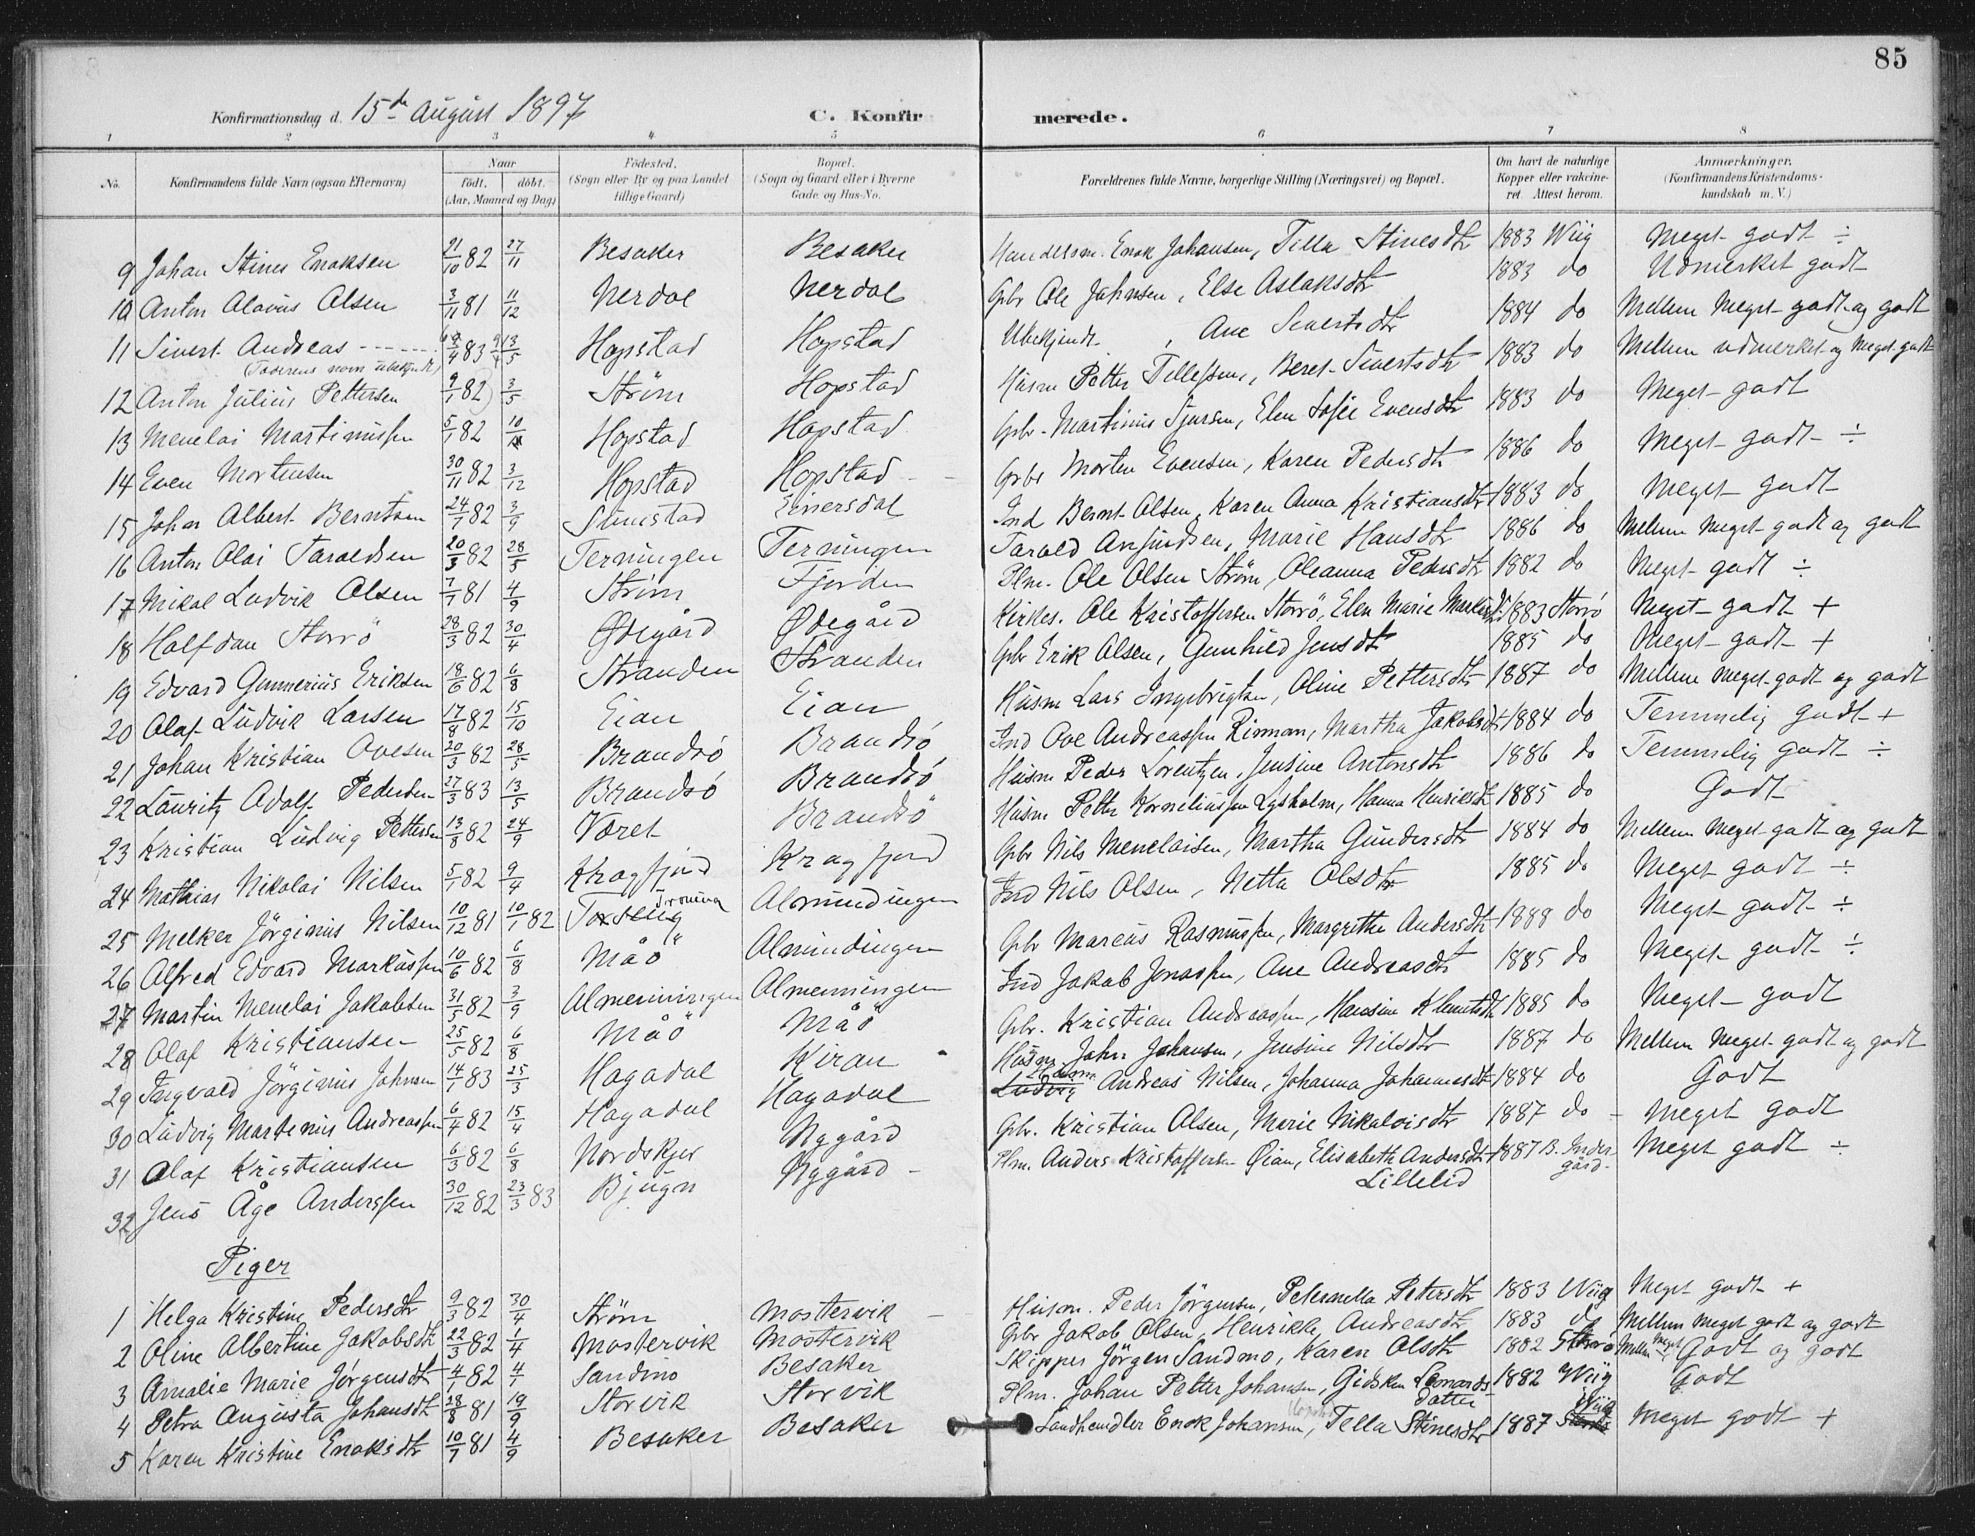 85
Konfirmationsdag d. 15de August 1897
C. Konfirmerede.
1 2 3 4 5 6 7 8
No. Konfirmandens fulde Navn (ogsaa Efternavn) Naar født. døbt. (Aar, Maaned og Dag) Fødested. (Sogn eller By og paa Landet tillige Gaard) Bopæl. (Sogn og Gaard eller i Byerne Gade og Hus-No. Forældrenes fulde Navne, borgerlige Stilling (Næringsvei) og Bopæl. Om havt de naturlige Kopper eller vakcineret. Attest herom. Anmærkninger. (Konfirmandens Kristendomskundskab m. V.)
9 Johan Stines Enoksen 21/10 82 27/11 Besaker Besaker Handelsm. Enok Johansen, Tilla Stinesdtr 1883 Wiig Meget godt ÷
10 Anton Alavius Olsen 3/11 81 11/12 Nerdal Nerdal Gbr Ole Johnsen, Else Aslaksdtr 1883 do Udmerket godt
11 Sivert Andreas 83 13/5 Hopstad Hopstad Ubekjendt, Ane Sivertsdtr 1884 do Mellem Meget godt og godt
(Faderens navn ubekjendt)
12 Anton Julius Pettersen 9/1 82 3/5 Strøm Hopstad Husm Petter Tillessen, Beret Sivertsdtr 1883 do Mellem udmerket og Meget godt
13 Menelai Martinussen 5/1 82 Hopstad Hopstad Gbr. Martinus Sjursen, Elen Sofie Evensdtr 1883 do Meget godt
14 Even Mortensen 30/11 82 3/12 Hopstad Hopstad Gbr Morten Evensen, Karen Pedersdtr 1886 do Meget godt ÷
15 Johan Albert Berntsen 24/7 82 3/9 Einersdal Ind Bernt Olsen, Karen Anna Kristiansdtr 1883 do Meget godt
16 Anton Olai Taraldsen 20/3 82 28/5 Terningen Terningen Tarald Arfindsen, Marie Hansdtr 1886 do Mellem meget godt og godt
17 Mikal Ludvik Olsen 7/7 81 4/9 Strøm Fjorden Plm. Ole Olsen Strøm, Oleanna Pedersdtr 1882 do Meget godt ÷
18 Halfdan Storrö 28/3 82 30/4 Ødegård Ødegård Kirkes. Ole Kristoffersen Storrö, Elen Marie 1883 Storrö Meget godt +
19 Edvard Gunnerius Eriksen 18/6 82 6/8 Stranden Stranden Gbr Erik Olsen, Gunhild Jensdtr 1885 do Meget godt +
20 Olaf Ludvik Larsen 17/8 82 15/10 Eian Eian Husm Lars Ingebrigtsen, Oline Pettersdtr 1887 do Mellem meget godt og godt
21 Johan Kristian Ovesen 20/3 82 28/5 Brandsö Brandsö Ind Ove Andreassen Rinman, Martha Jakobsdtr 1884 do Temmelig godt +
22 Lauritz Adolf Pedersen 27/3 83 13/5 Brandsö Brandsö Husm Peder Lorentzen, Jensine Antonsdtr 1886 do Temmelig godt ÷
23 Kristian Ludvig Pettersen 13/8 82 24/9 Været Brandsö Husm Petter Korneliussen Lysholm, Hanna Henriksdtr 1885 do Godt
24 Mathias Nikolai Nilsen 5/1 82 9/4 Kragfjord Kragfjord Gbr Nils Menelaisen, Martha Gundersdtr 1884 do Mellem Meget godt og godt
25 Melker Jörginus Nilsen 10/12 81 10/1 82 Almindingen Ind Nils Olsen, Netta Olsdtr 1885 do Meget godt ÷
26 Alfred Edvard Markussen 10/6 82 6/8 Måö Almindingen Gbr Marcus Rasmussen, Margrethe Andersdtr 1888 do Meget godt ÷
27 Martin Menelai Jakobsen 31/5 82 3/9 Almenningen Almenningen Ind Jakob Jonassen, Ane Andreasdtr 1885 do Meget godt ÷
28 Olaf Kristiansen 25/5 82 6/8 Måö Måö Gbr. Kristian Andreassen, Hansine Klemetsdtr 1885 do Meget godt
29 Ingvald Jörginus Johnsen 14/1 83 25/3 Hagadal Kiran Husm John Johansen, Jensine Nilsdtr 1887 do Mellem Meget godt og godt
30 Ludvig Martinius Andreassen 6/4 82 15/4 Hagadal Hagadal Husm Andreas Nilsen, Johanna Johannesdtr 1884 do Godt
31 Olaf Kristiansen 6/3 82 6/8 Nordskjer Nygård Gbr. Kristian Olsen, Marie Nikolaisdtr 1887 do Meget godt
32 Jens Åge Anderssen 30/12 82 23/3 83 Bjugn Nygård Plm. Anders Kristoffersen Øian, Elisabeth Andersdtr Lillelid 1887 B. Indergård. Meget godt ÷
Piger
1 Helga Kristine Pedersdtr 9/3 82 30/4 Strøm Mostervik Husm. Peder Jörgensen, Petternella Petersdtr 1883 Wiig Meget godt +
2 Oline Albertine Jakobsdtr 22/3 82 1/4 Mostervik Mostervik Gbr Jakob Olsen, Henrikke Andreasdtr 1883 do Mellem meget godt og godt
3 Amalie Marie Jörgensdtr 4/1 82 4/1 Sandmo Besaker Skipper Jörgen Sandmo, Karen Olsdtr 1882 Storrö Mellem Meget Godt og godt
4 Petra Augusta Johansdtr 28/8 81 19/9 Storvik Storvik Plm. Johan Petter Johansen, Gidsken Leonardsdatter 1882 Wiig Godt
5 Karen Kristine Enoksdtr 10/7 81 4/9 Besaker Besaker Landhandler Enok Johansen, Tella Stinesdtr 1887 Wiig Meget godt +